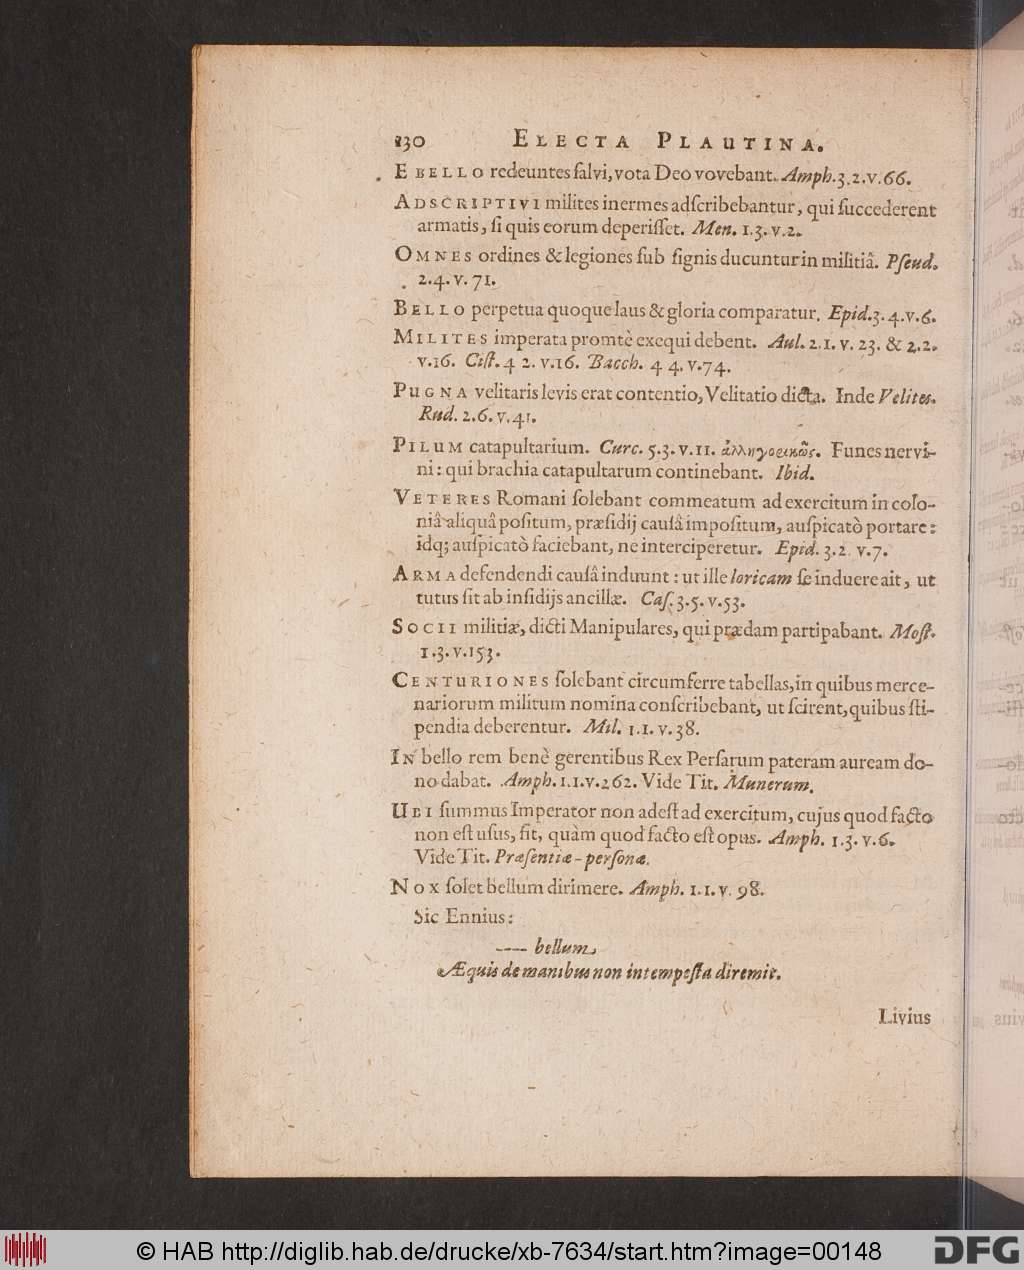 130 ELECTA PLAUTINA.
E BELLO redeuntes ſalvi, vota Deo vovebant. Amph. 3. 2. v. 66.
ADSCRIPTIVI milites inermes adſcribebantur, qui ſuccederent
armatis, ſi quis eorum deperiſſet. Men. 1. 3. v. 2.
OMNES ordines & legiones ſub ſignis ducuntur in militiâ. Pſeud.
2. 4. v. 71.
BELLO perpetua quoque laus & gloria comparatur. Epid. 3. 4. v. 6.
MILITES imperata promtè exequi debent. Aul. 2. 1. v. 23. & 2. 2.
v. 16. Ciſt. 4 2. v. 16. Bacch. 4 4. v. 74.
PUGNA velitaris levis erat contentio, Velitatio dicta. Inde Velites.
Rud. 2. 6. v. 41.
PILUM catapultarium. Curc. 5. 3. v. 11. ἀλληγορικῶς. Funes nervi-
ni: qui brachia catapultarum continebant. Ibid.
VETERES Romani ſolebant commeatum ad exercitum in colo-
niâ aliquâ poſitum, præſidij cauſâ impoſitum, auſpicatò portare:
idq; auſpicatò faciebant, ne interciperetur. Epid. 3. 2. v. 7.
ARMA defendendi cauſâ induunt: ut ille loricam ſe induere ait, ut
tutus ſit ab inſidijs ancillæ. Caſ. 3. 5. v. 53.
SOCII militiæ, dicti Manipulares, qui prædam partipabant. Moſt.
1. 3. v. 153.
CENTURIONES ſolebant circumferre tabellas, in quibus merce-
nariorum militum nomina conſcribebant, ut ſcirent, quibus ſti-
pendia deberentur. Mil. 1. 1. v. 38.
IN bello rem benè gerentibus Rex Perſarum pateram auream do-
no dabat. Amph. 1. 1. v. 262. Vide Tit. Munerum.
UBI ſummus Imperator non adeſt ad exercitum, cujus quod facto
non eſt uſus, fit, quàm quod facto eſt opus. Amph. 1. 3. v. 6.
Vide Tit. Præſentiæ-perſonæ.
NOX ſolet bellum dirimere. Amph. 1. 1. v. 98.
Sic Ennius:
---- bellum
Æquis de manibus non intempeſta diremit.
Livius
© HAB http://diglib.hab.de/drucke/xb-7634/start.htm?image=00148
DFG